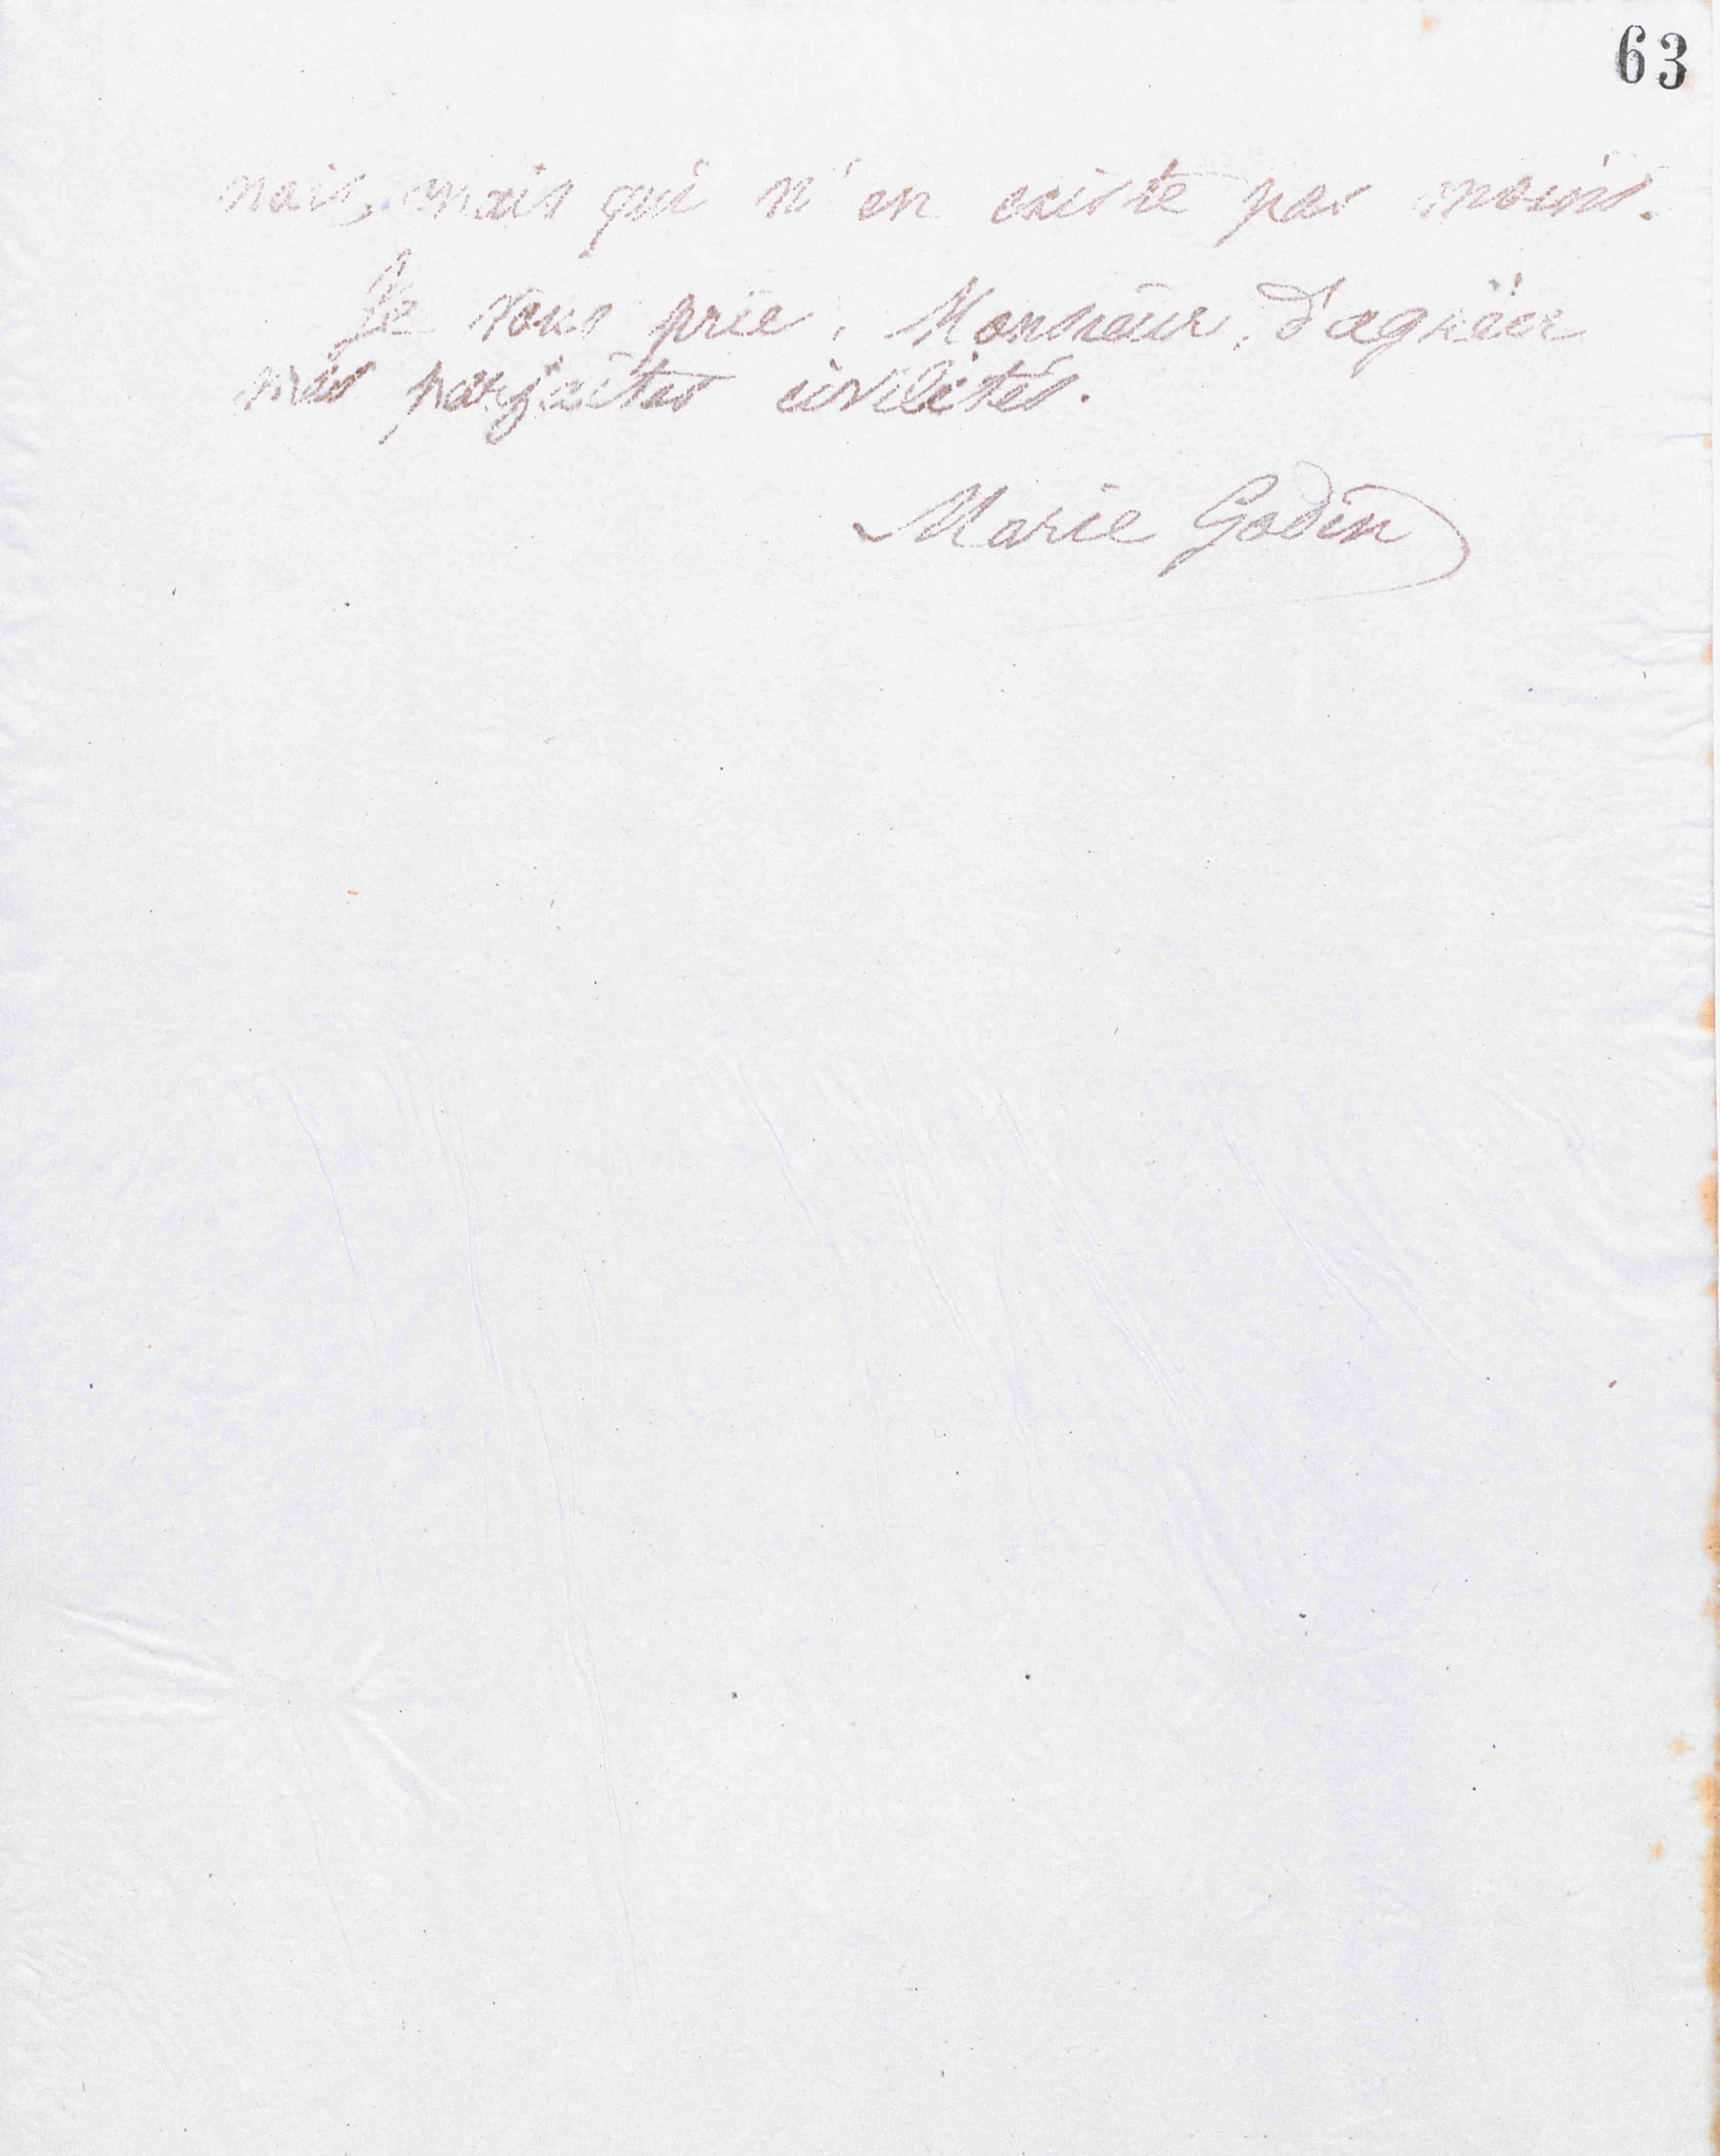 63
nais, mais qui n'en existe pas moins.
Je vous prie, Monsieur, d'agréer
mes parfaites civilités.
Marie Godin